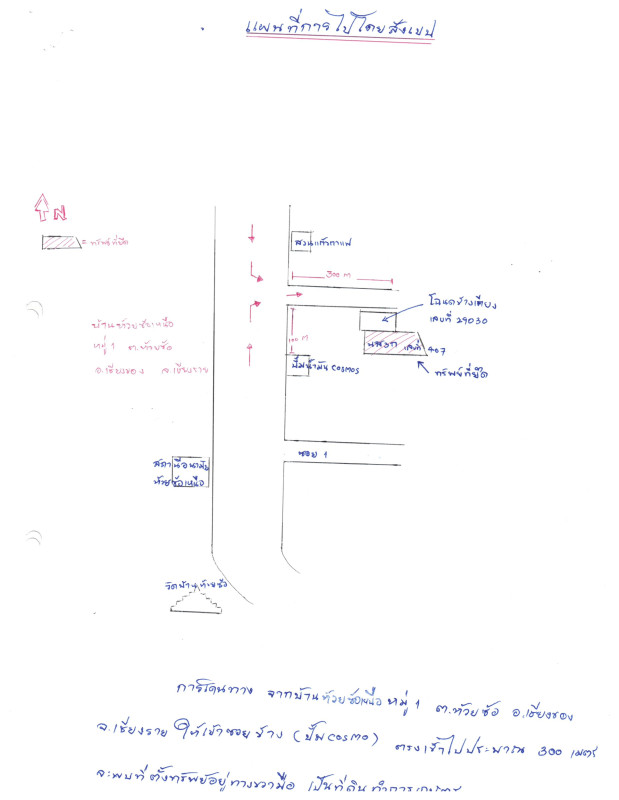 แผนที่การไปโดยสังเขป
N
= ทรัพย์ที่ยึด
สวนแก้วกาแฟ
300 m
โฉนดข้างเคียง
เลขที่ 29030
บ้านห้วยซ้อเหนือ
หมู่ 1 ต.ห้วยซ้อ
อ.เชียงของ จ.เชียงราย
100 m
นส3ก เลขที่ 407
ทรัพย์ที่ยึด
ปั๊มน้ำมัน COSMOS
ซอย 1
สถานีอนามัย
ห้วยซ้อเหนือ
ห้วยซ้อ
การเดินทาง จากบ้านห้วยซ้อเหนือ หมู่ 1 ต.ห้วยซ้อ อ.เชียงของ
จ.เชียงราย ให้เข้าซอยข้าง (ปั๊ม COSMO) ตรงเข้าไปประมาณ 300 เมตร
จะพบที่ตั้งทรัพย์อยู่ทางขวามือ เป็นที่ดินทำการเกษตร